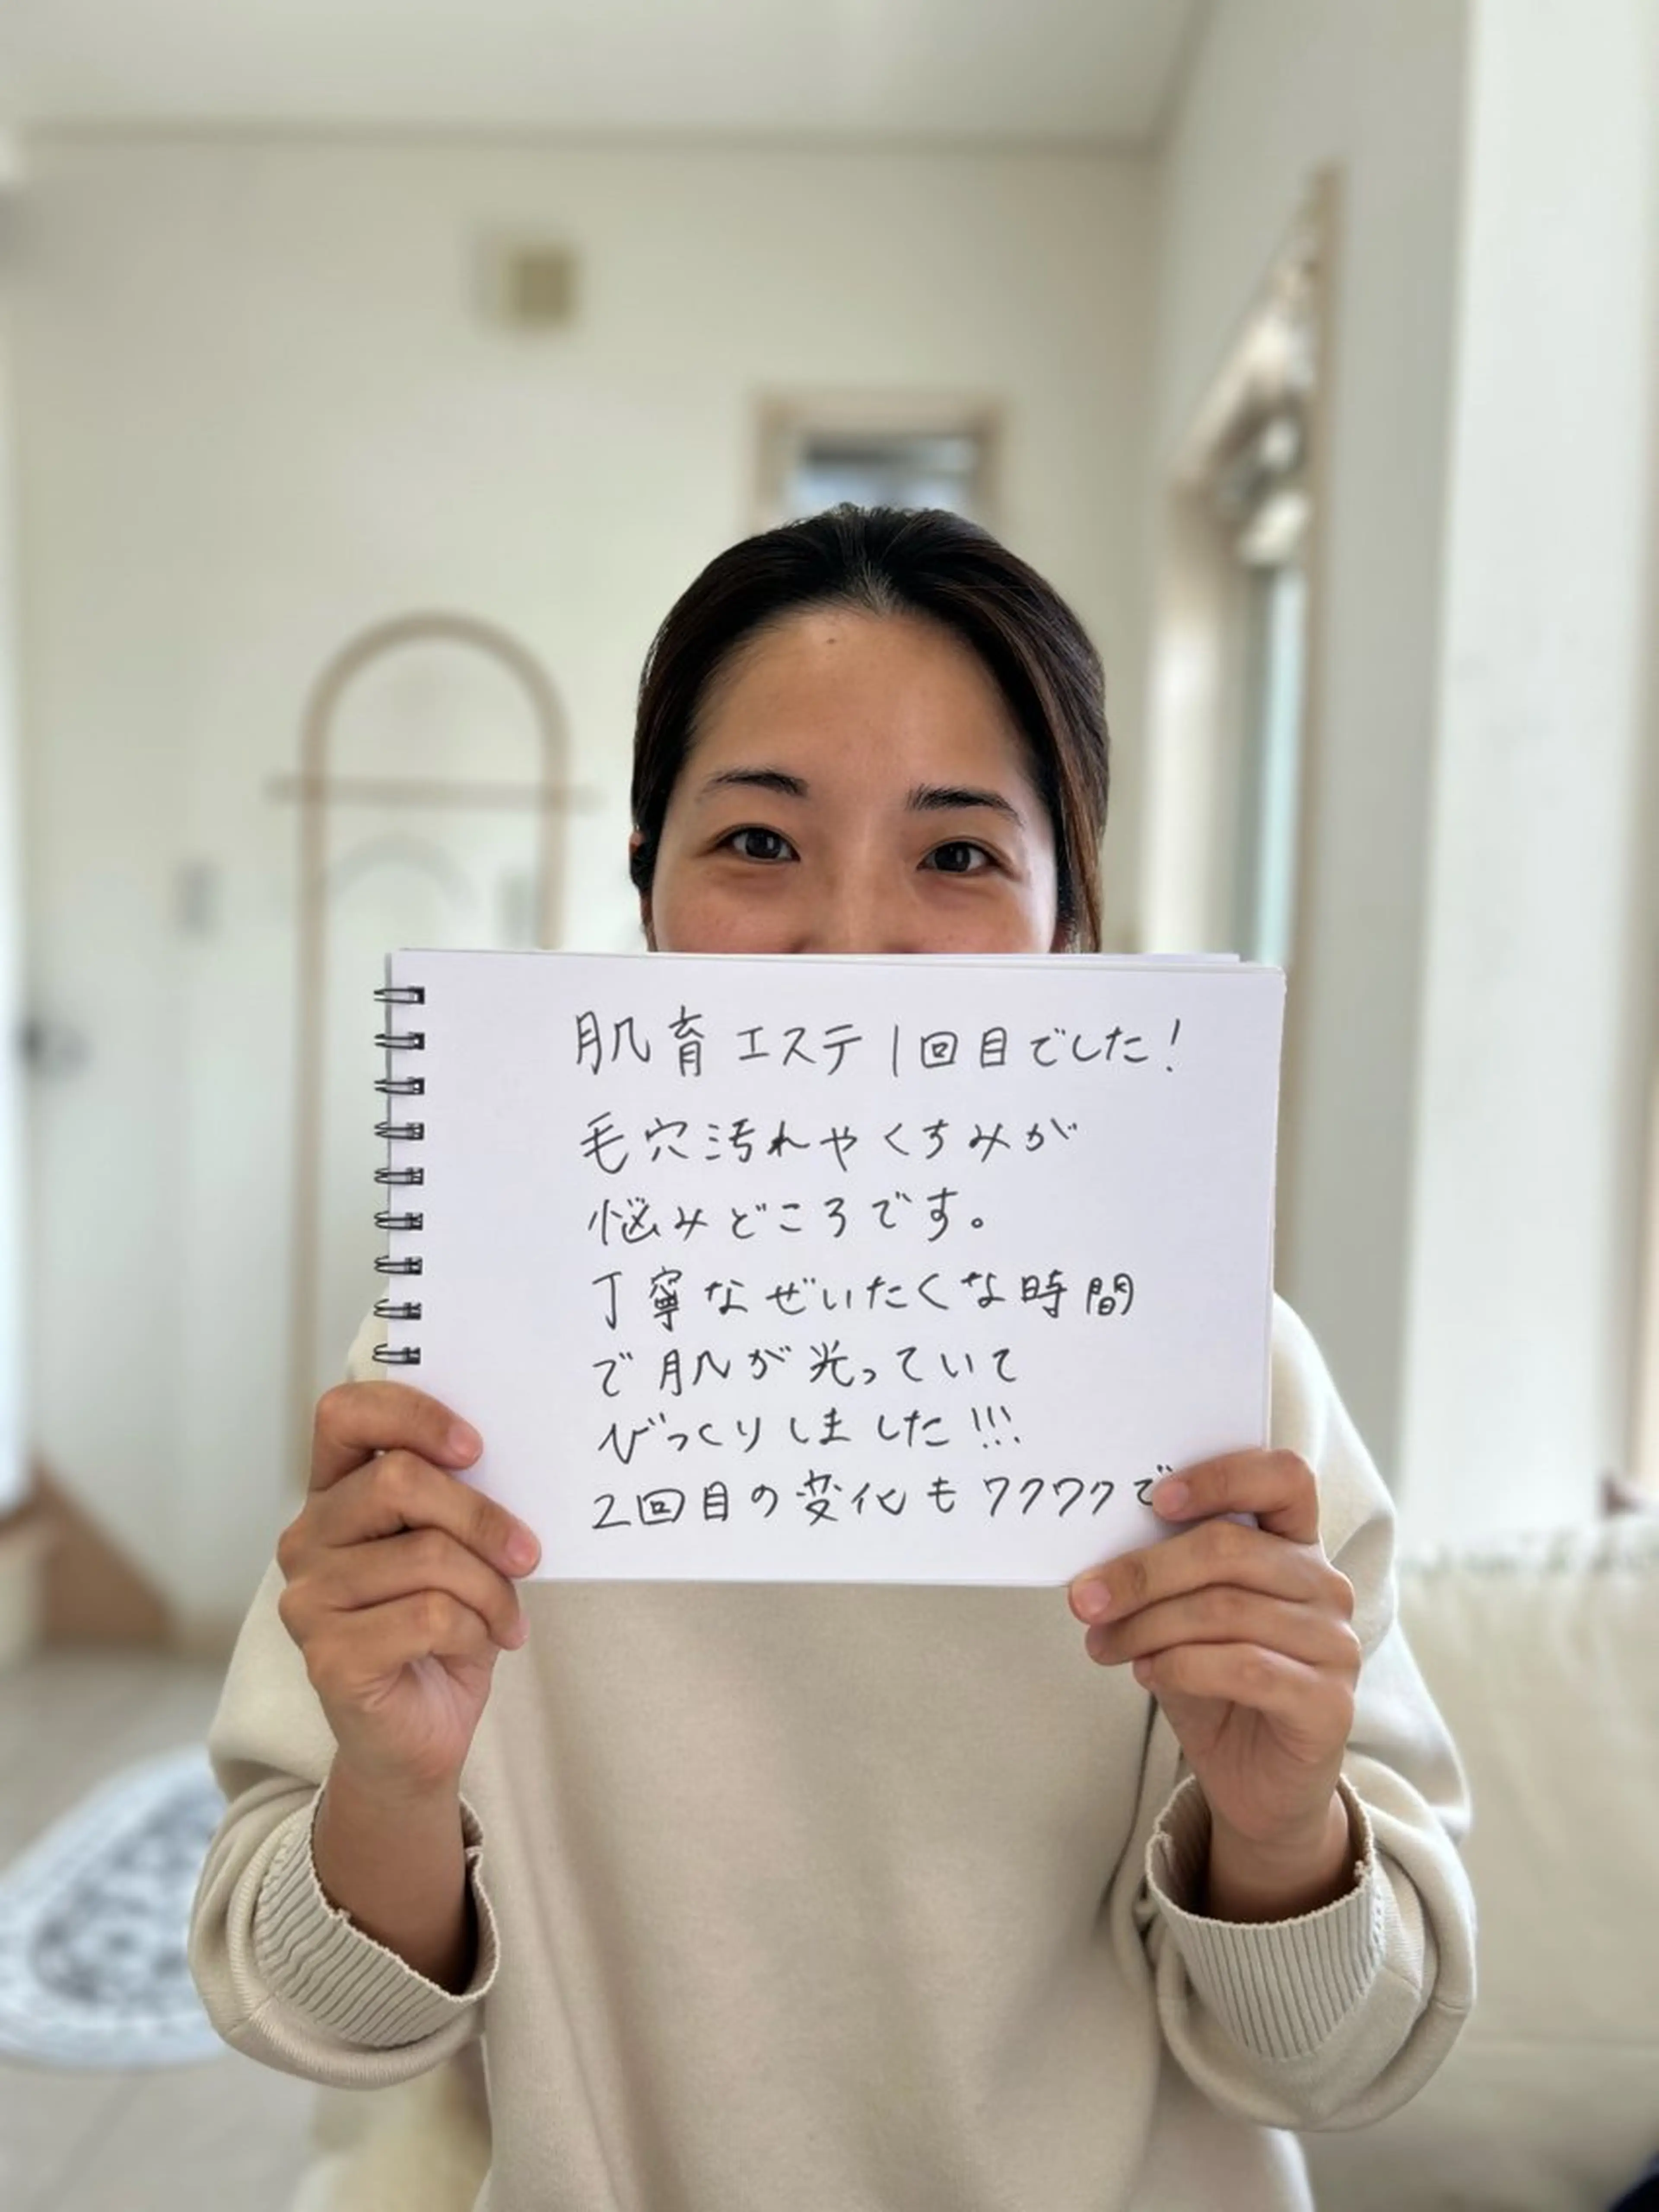 肌育エステ1回目でした!
毛穴汚れやくすみが
悩みどころです。
丁寧なぜいたくな時間
で肌が光っていて
びっくりしました!!!
2回目の変化もワクワクで